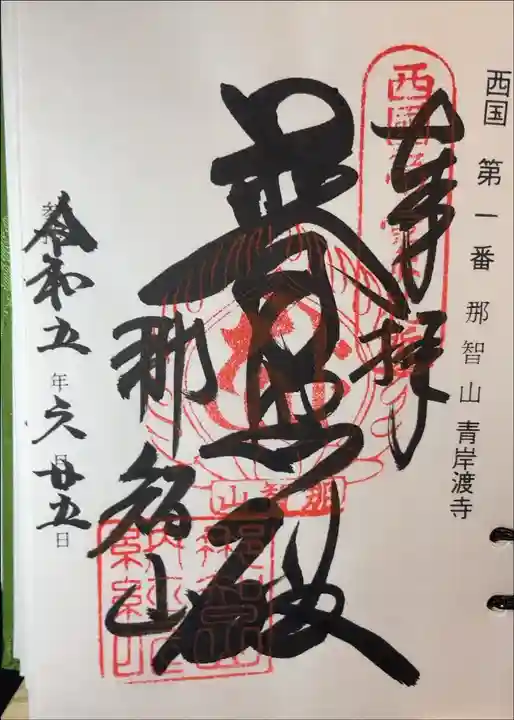 西国 第一番 那智山 青岸渡寺
奉拝
普照殿
那智山
令和五年六月廿五日
那智山